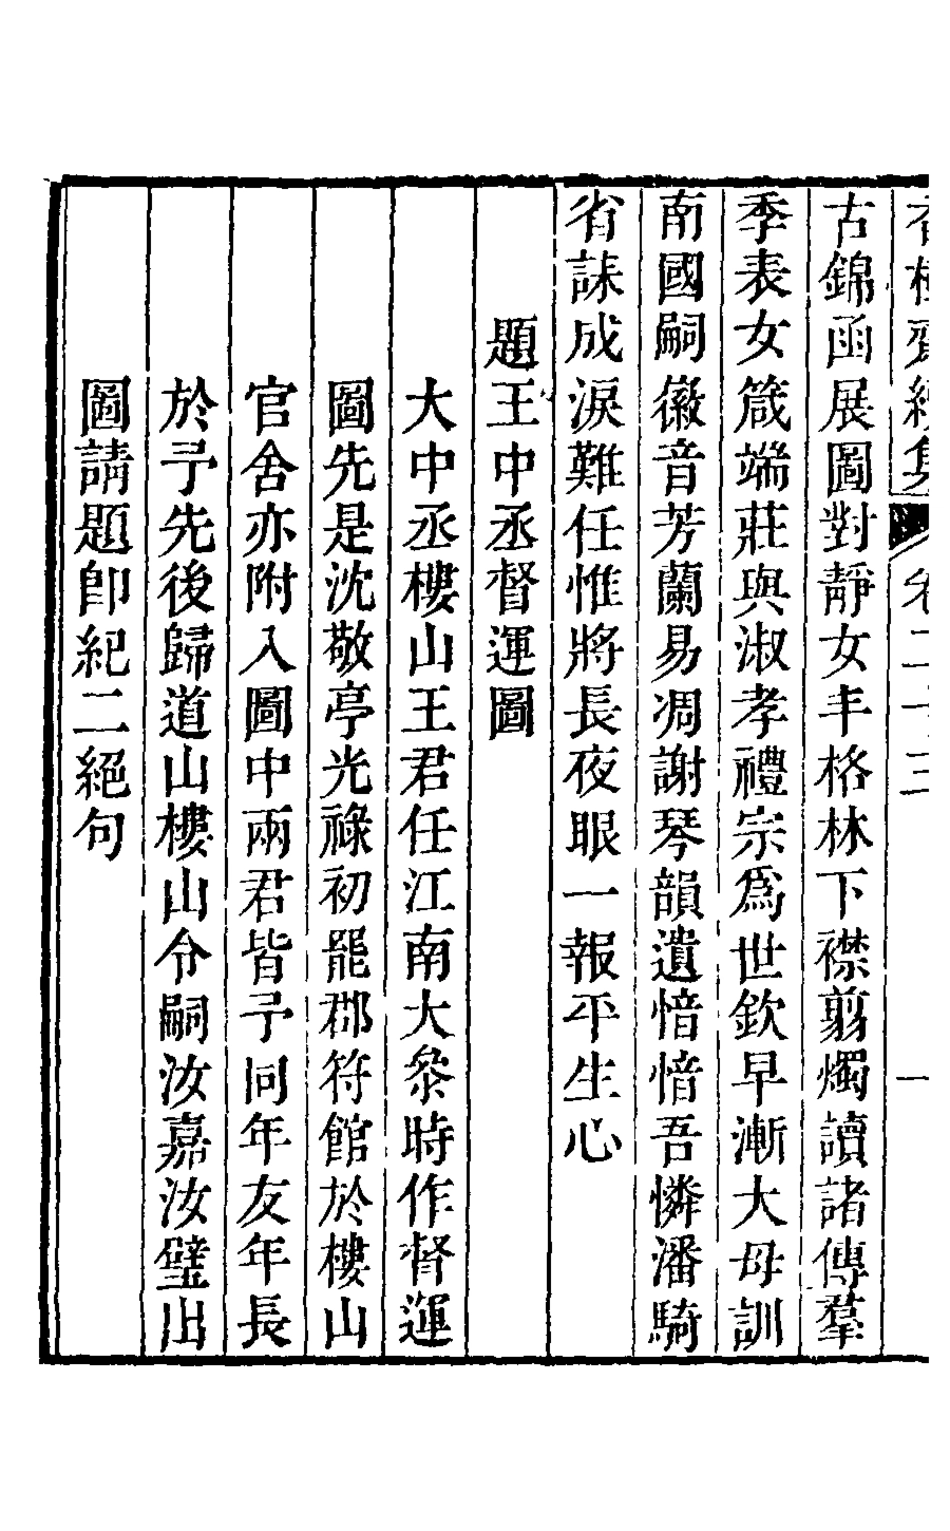 古錦函展圖對靜女丰格林下襟翦燭讀諸傳羣
季表女箴端莊與淑孝禮宗爲世欽早漸大母訓
南國嗣徽音芳蘭易凋謝琴韻遺愔愔吾憐潘騎
省誄成淚難任惟將長夜眼一報平生心
題王中丞督運圖
大中丞樓山王君任江南大叅時作督運
圖先是沈敬亭光祿初罷郡符館於樓山
官舍亦附入圖中兩君皆予同年友年長
於予先後歸道山樓山令嗣汝嘉汝璧出
圖請題卽紀二絕句